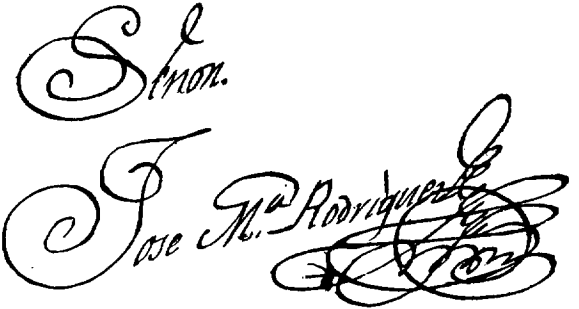 Señor.
Jose M.ª Rodriguez